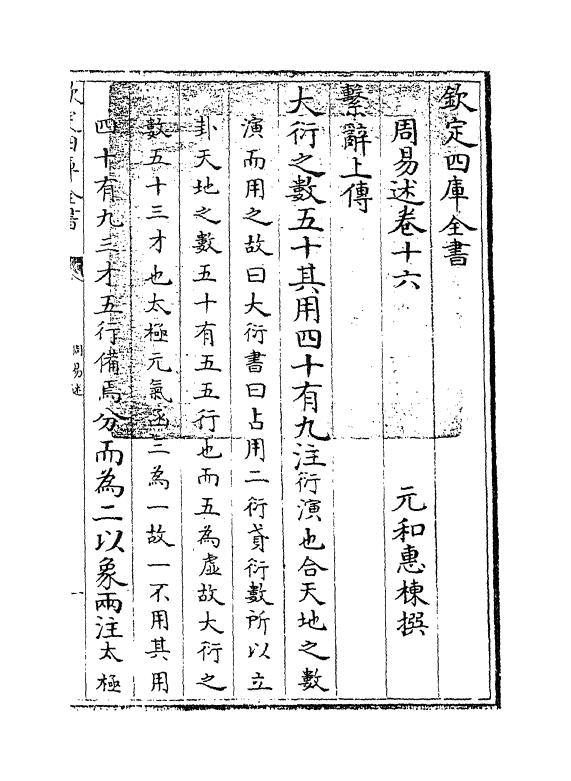 欽定四庫全書
周易述卷十六
元和惠棟撰
繫辭上傳
大衍之數五十其用四十有九注衍演也合天地之數
演而用之故曰大衍書曰占用二衍貣衍數所以立
卦天地之數五十有五五行也而五為虛故大衍之
數五十三才也太極元氣函三為一故一不用其用
四十有九三才五行備焉分而為二以象兩注太極
欽定四庫全書
周易述
一